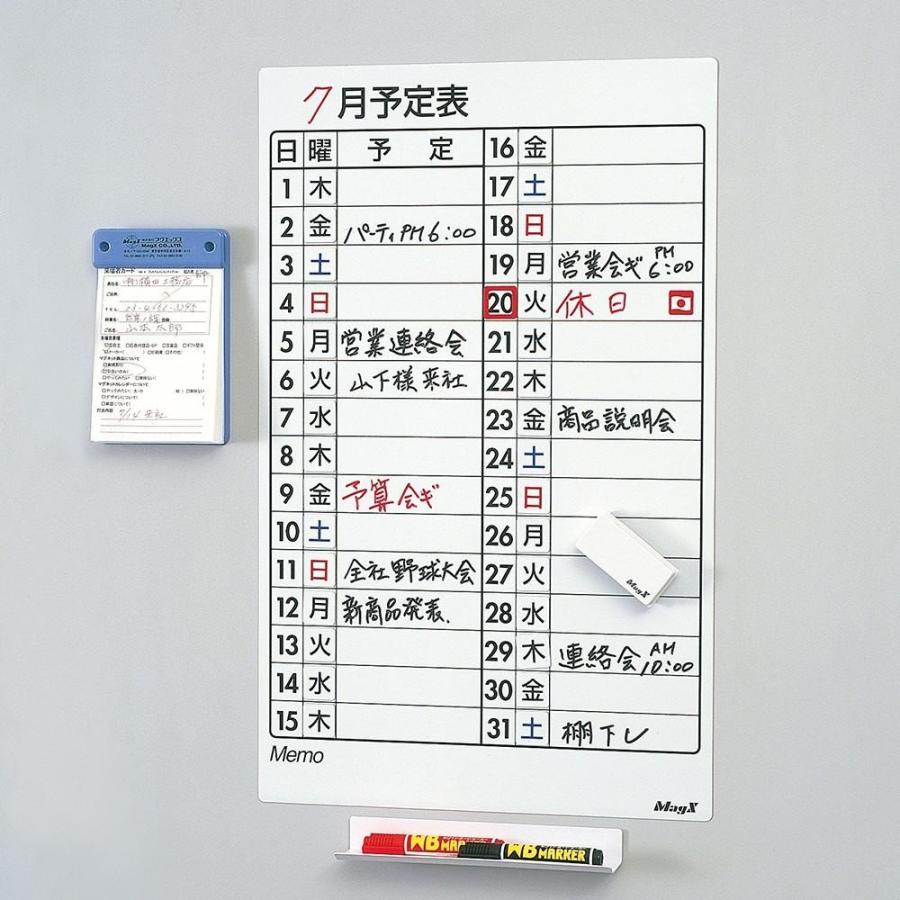 7月予定表
日 曜 予 定
1 木
2 金 パーティPM6:00
3 土
4 日
5 月 営業連絡会
6 火 山下様来社
7 水
8 木
9 金 予算会ギ
10 土
11 日 全社野球大会
12 月 新商品発表.
13 火
14 水
15 木
16 金
17 土
18 日
19 月 営業会ギ PM 6:00
20 火 休日
21 水
22 木
23 金 商品説明会
24 土
25 日
26 月
27 火
28 水
29 木 連絡会 AM 10:00
30 金
31 土 棚下し
Memo
MagX
MagX
株式会社マグエックス
MagX CO.,LTD.
来場者カード
7/14 来社
WB MAR
WB MARKER